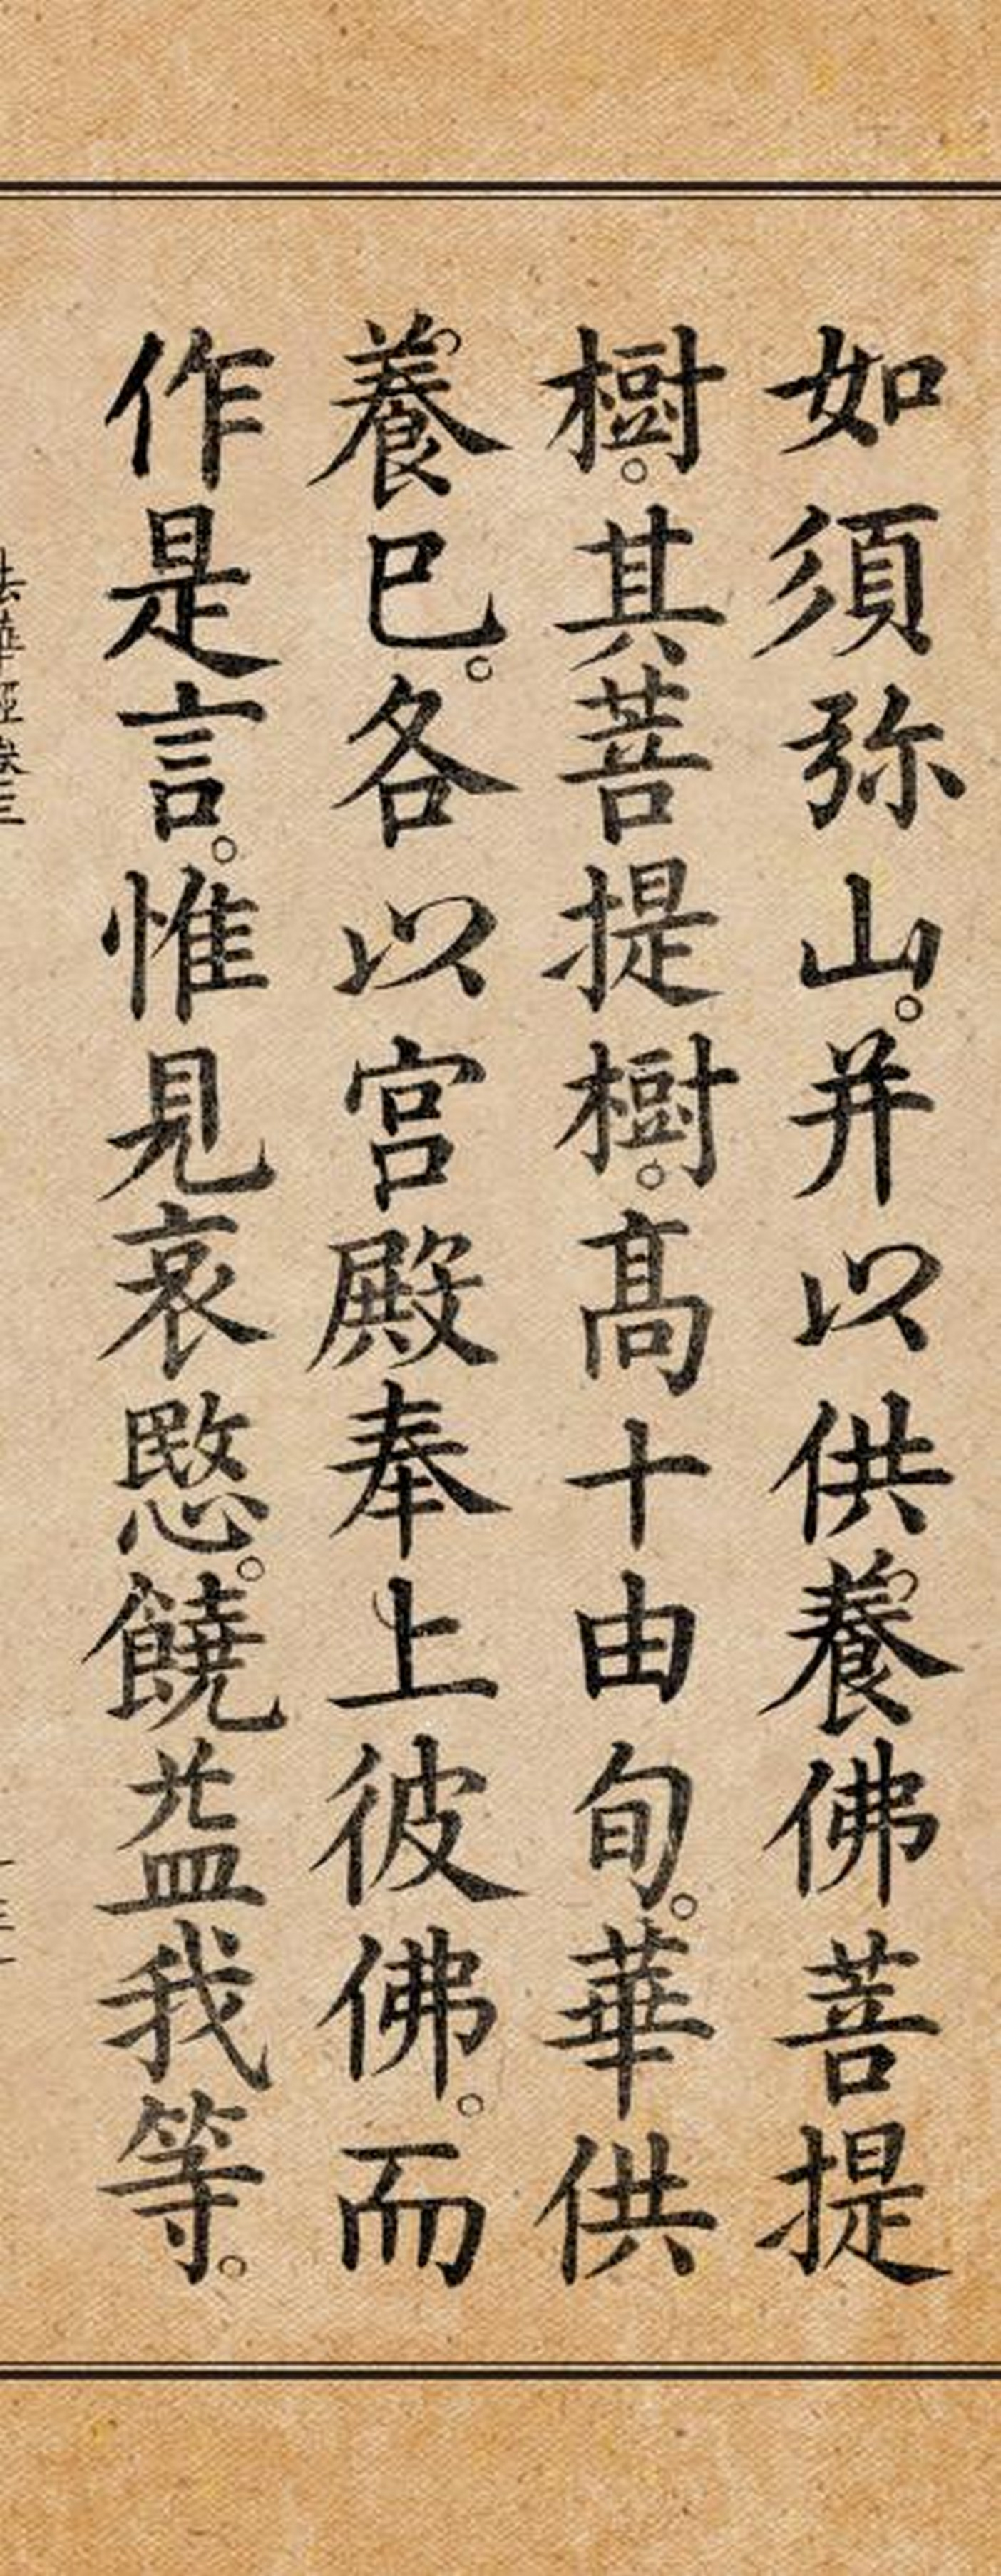 如須弥山。并以供養佛菩提
樹。其菩提樹。高十由旬。華供
養已。各以宮殿奉上彼佛。而
作是言。惟見哀愍。饒益我等。